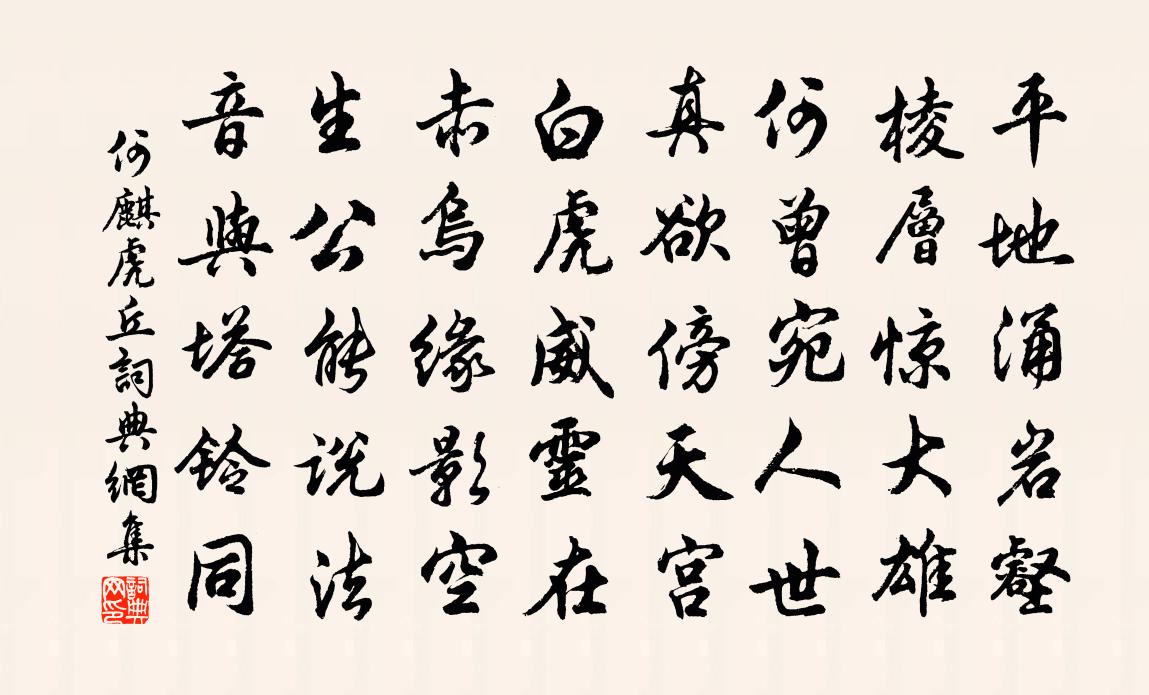 平地涌岩壑
棱層惊大雄
何曾宛人世
真欲傍天宫
白虎威靈在
赤烏緣影空
生公能説法
音與塔鈴同
何麒虎丘詞典網集
詞典网印